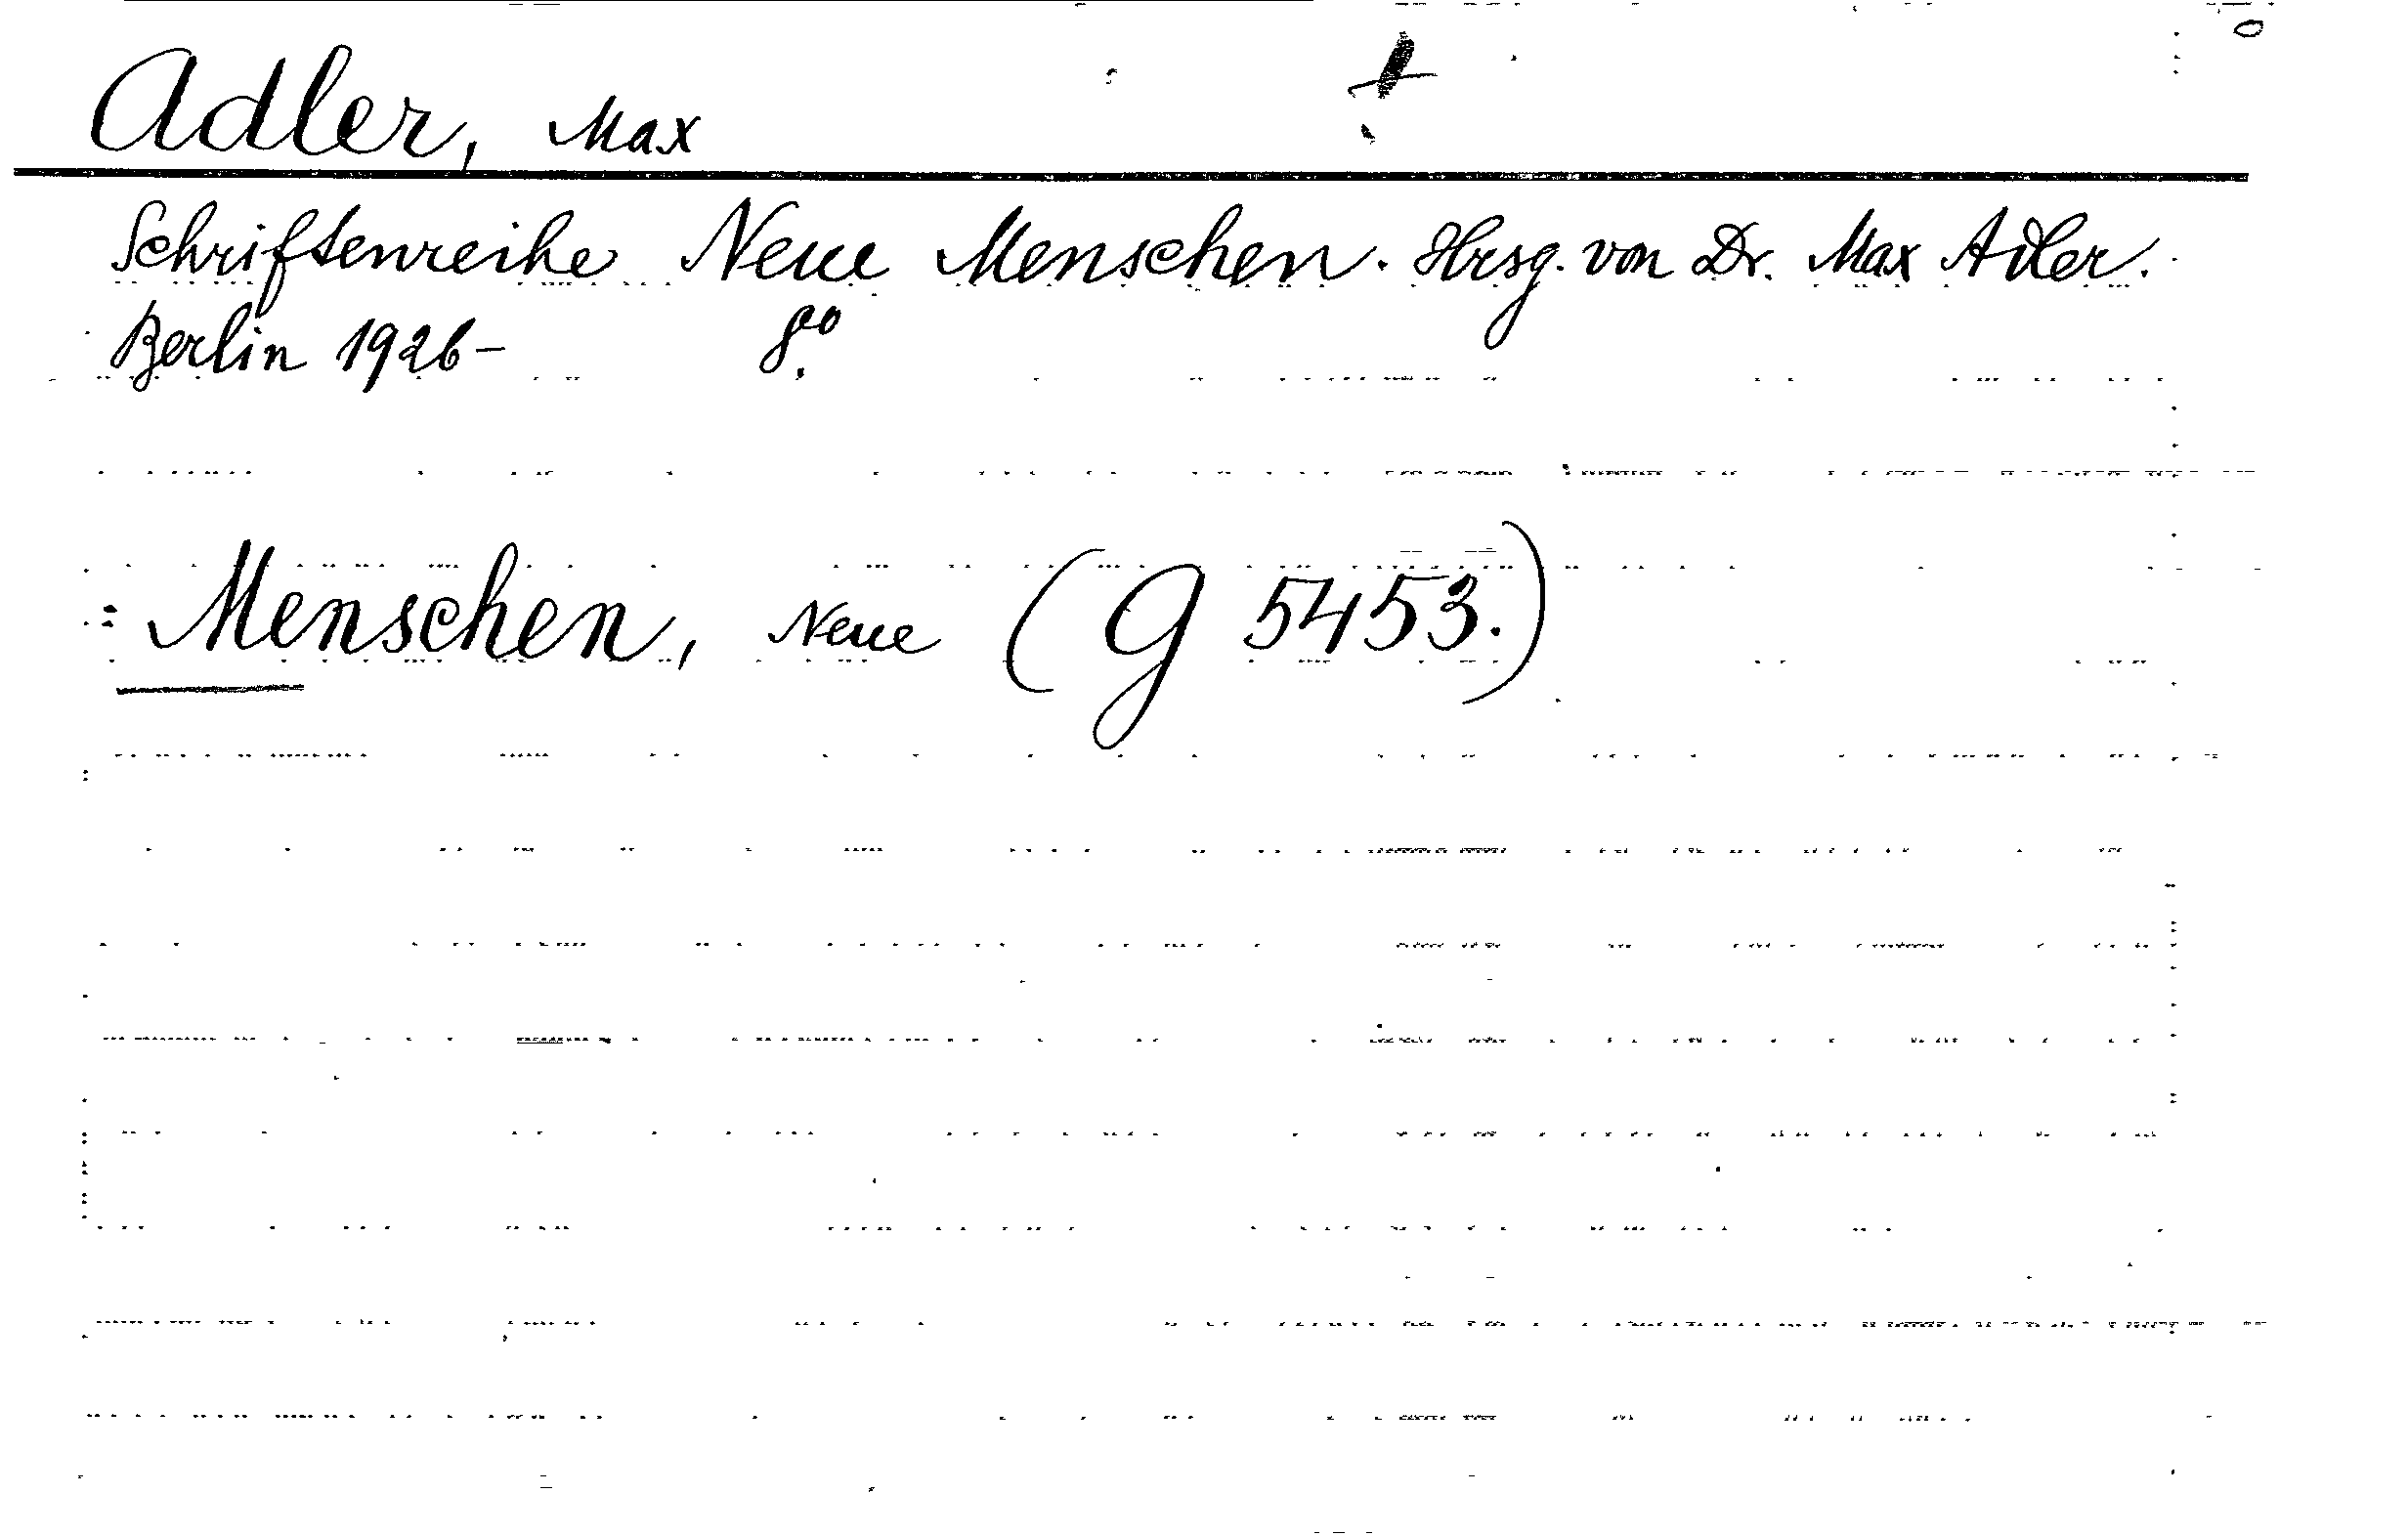 Adler, Max
Schriftenreihe Neue Menschen. Hrsg. von Dr. Max Adler.
Berlin 1926- 8º.
: Menschen, Neue (G 5453.)